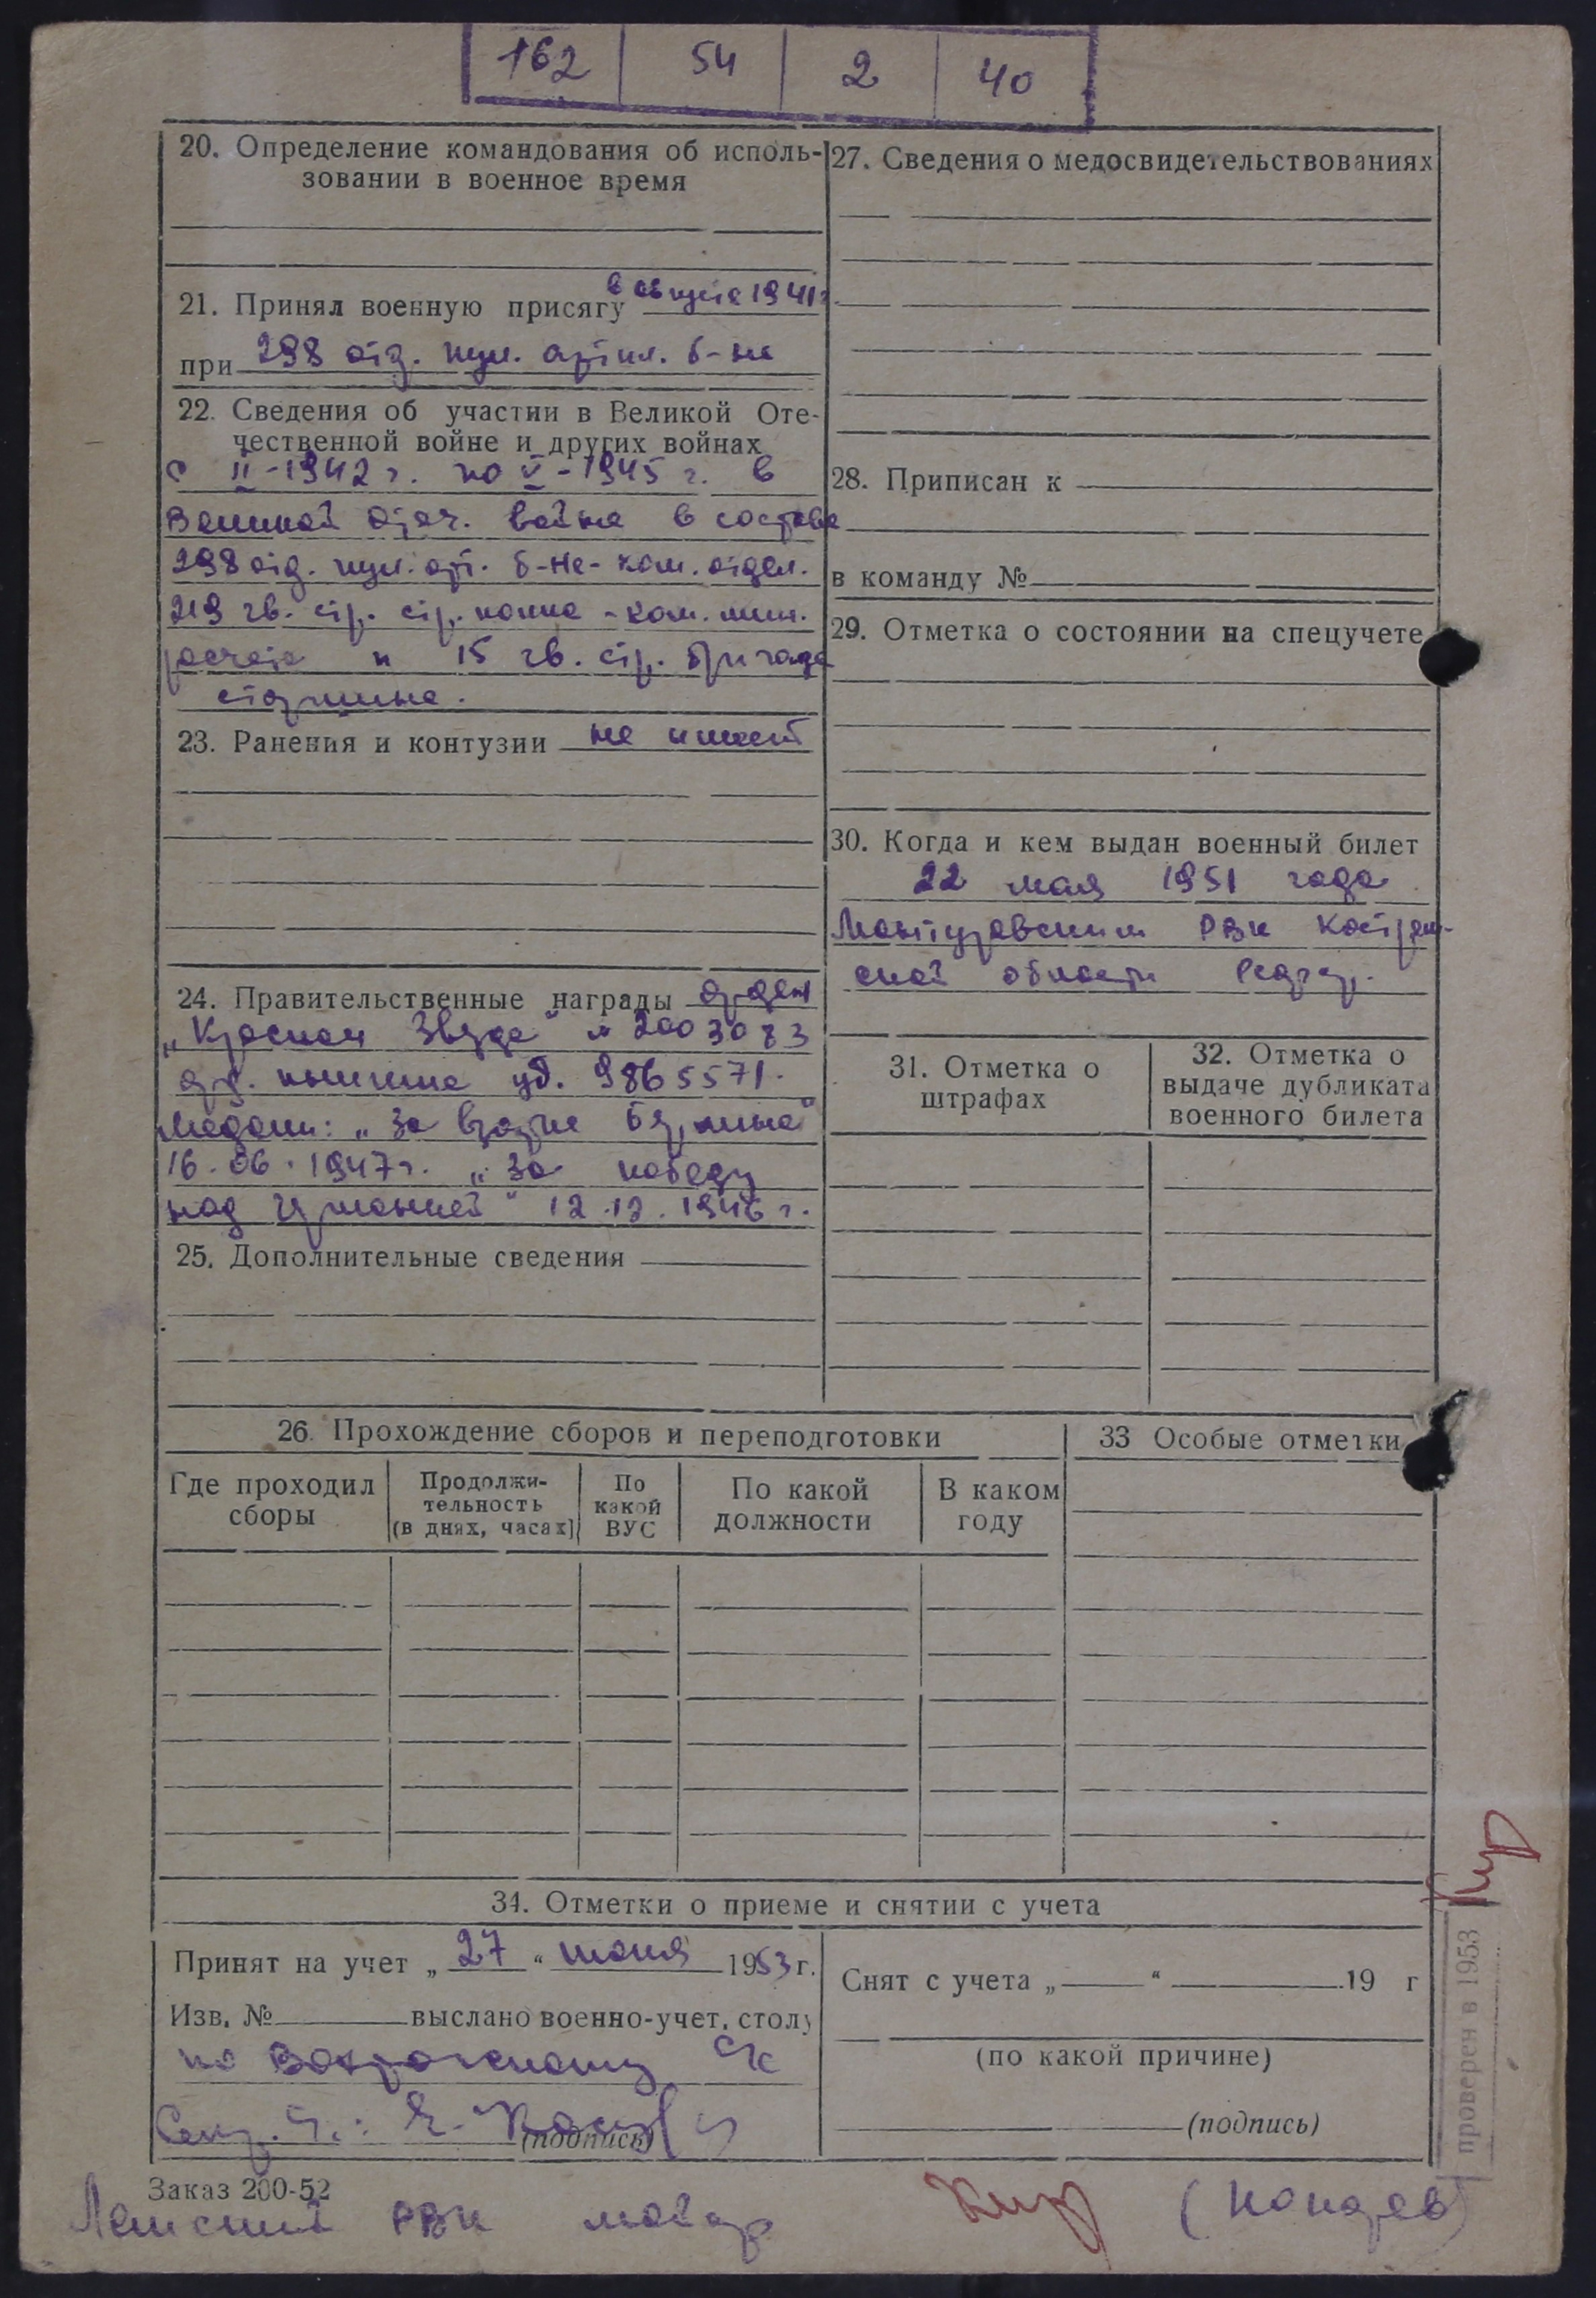 162 54 2 40
20. Определение командования об исполь-
зовании в военное время
21. Принял военную присягу в августе 1941 г
при 298 отд. пул. артил. б-не
22. Сведения об участии в Великой Оте-
чественной войне и других войнах
с II-1942 г. по V-1945 г. в
Великой отеч. войне в составе
298 отд. пул. арт. б-не - ком. отдел.
219 гв. стр. стр. полка - ком. мин.
расчета и 15 гв. стр. бригада
старшина.
23. Ранения и контузии не имеет
24. Правительственные награды орден
„Красная Звезда" № 2003083
орд. книжка уд. 9865571.
Медали: „За взятие Берлина"
16.06.1947 г. „За победу
над Германией" 12.12.1946 г.
25. Дополнительные сведения
27. Сведения о медосвидетельствованиях
28. Приписан к
в команду №
29. Отметка о состоянии на спецучете
30. Когда и кем выдан военный билет
22 мая 1951 года
Мантуровским РВК Костром-
ской области
31. Отметка о
штрафах
32. Отметка о
выдаче дубликата
военного билета
26. Прохождение сборов и переподготовки
Где проходил
сборы
Продолжи-
тельность
(в днях, часах)
По
какой
ВУС
По какой
должности
В каком
году
33 Особые отметки
34. Отметки о приеме и снятии с учета
Принят на учет „ 27 " июня 1953 г.
Изв. № выслано военно-учет. столу
по с/с
(подпись)
Снят с учета „ " 19 г
(по какой причине)
(подпись)
проверен в 1953
Заказ 200-52
РВК майор